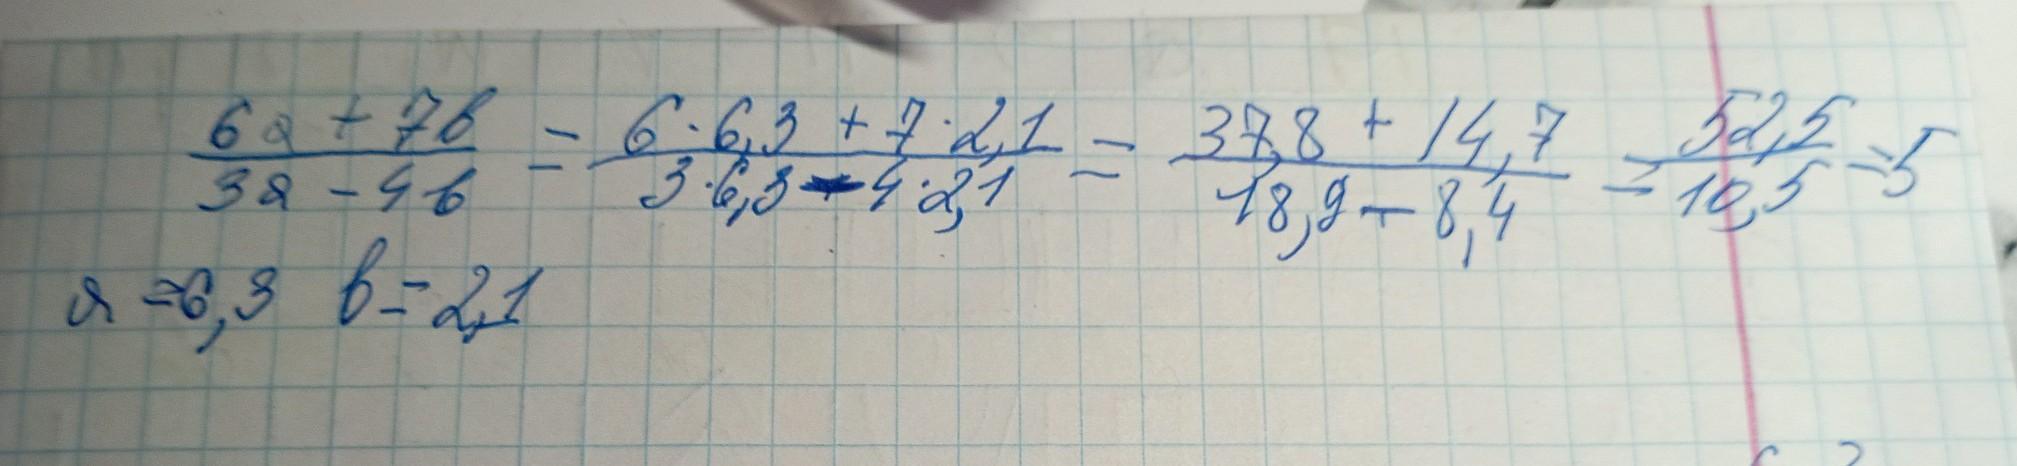 (6a + 7b)/(3a - 4b) = (6·6,3 + 7·2,1)/(3·6,3 - 4·2,1) = (37,8 + 14,7)/(18,9 - 8,4) = 52,5/10,5 = 5
a = 6,3 b = 2,1